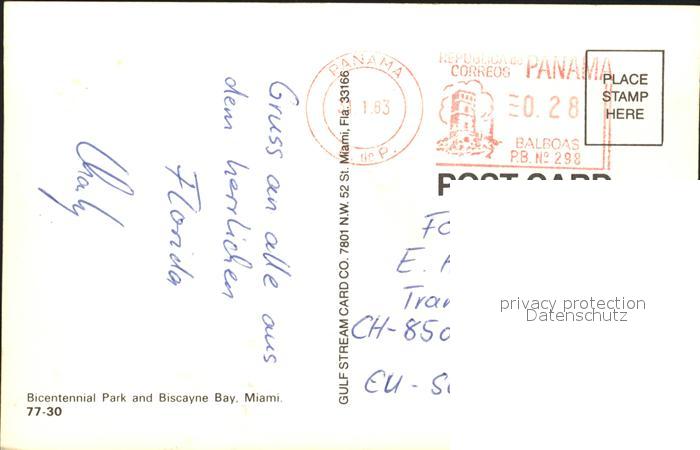 Gruss an alle aus
dem herrlichen
Florida
PANAMA
1.83
de P.
REPUBLICA de PANAMA
CORREOS
0.28
BALBOAS
P.B. Nº 298
PLACE
STAMP
HERE
POST CARD
E.
CH-850
privacy protection
Datenschutz
GULF STREAM CARD CO. 7801 N.W. 52 St. Miami, Fla. 33166
Bicentennial Park and Biscayne Bay, Miami.
77-30